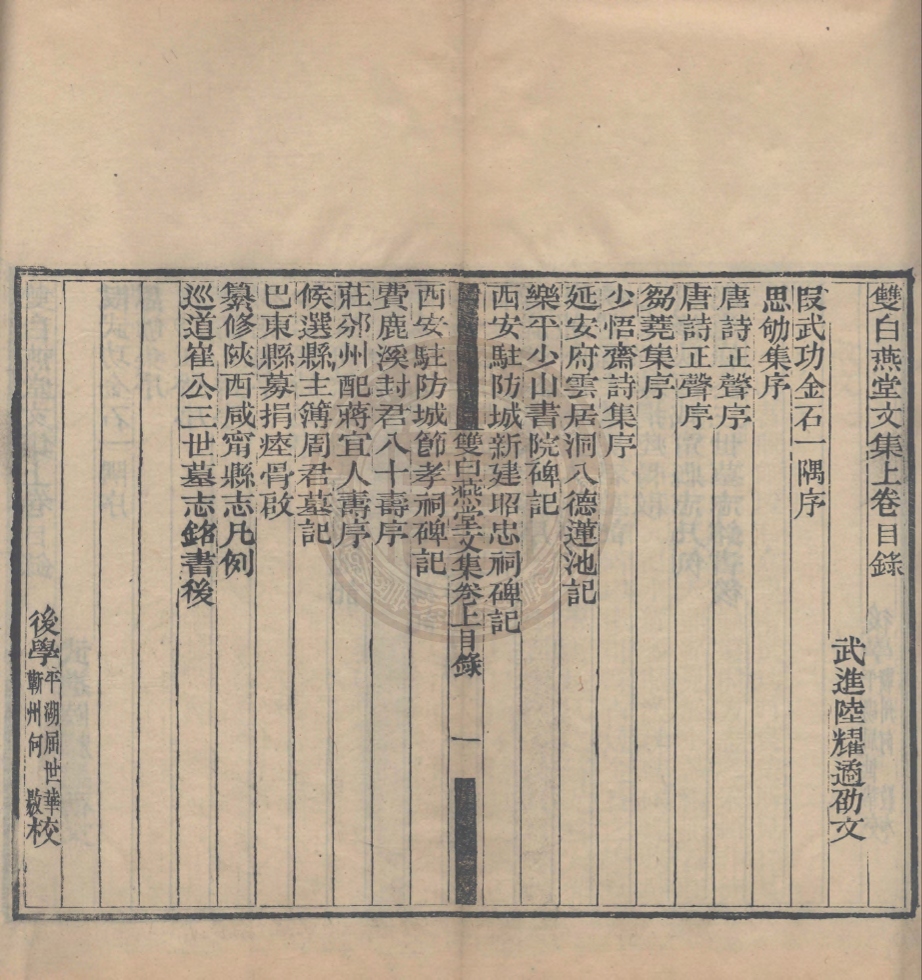 雙白燕堂文集上卷目錄
武進陸耀遹劭文
段武功金石一隅序
思劬集序
唐詩正聲序
唐詩正聲序
芻蕘集序
少悟齋詩集序
延安府雲居洞八德蓮池記
樂平少山書院碑記
西安駐防城新建昭忠祠碑記
雙白燕堂文集卷上目錄 一
西安駐防城節孝祠碑記
費鹿溪封君八十壽序
莊邠州配蔣宜人壽序
候選縣主簿周君墓記
巴東縣募捐瘞骨啟
纂修陝西咸甯縣志凡例
巡道崔公三世墓志銘書後
後學平湖屈世華蘄州何校